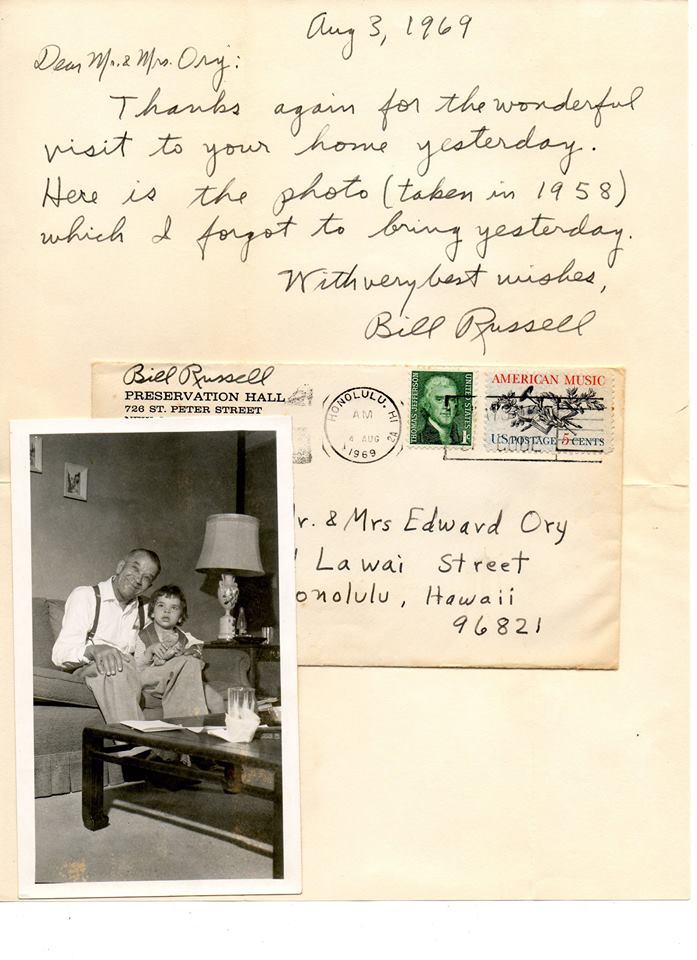 Aug 3, 1969
Dear Mr. & Mrs. Ory:
Thanks again for the wonderful
visit to your home yesterday.
Here is the photo (taken in 1958)
which I forgot to bring yesterday.
With very best wishes,
Bill Russell
Bill Russell
PRESERVATION HALL
726 ST. PETER STREET
HONOLULU, HI
AM
4 AUG
1969
2A
THOMAS JEFFERSON
UNITED STATES
1c
AMERICAN MUSIC
U.S. POSTAGE 5 CENTS
r. & Mrs Edward Ory
Lawai Street
onolulu, Hawaii
96821